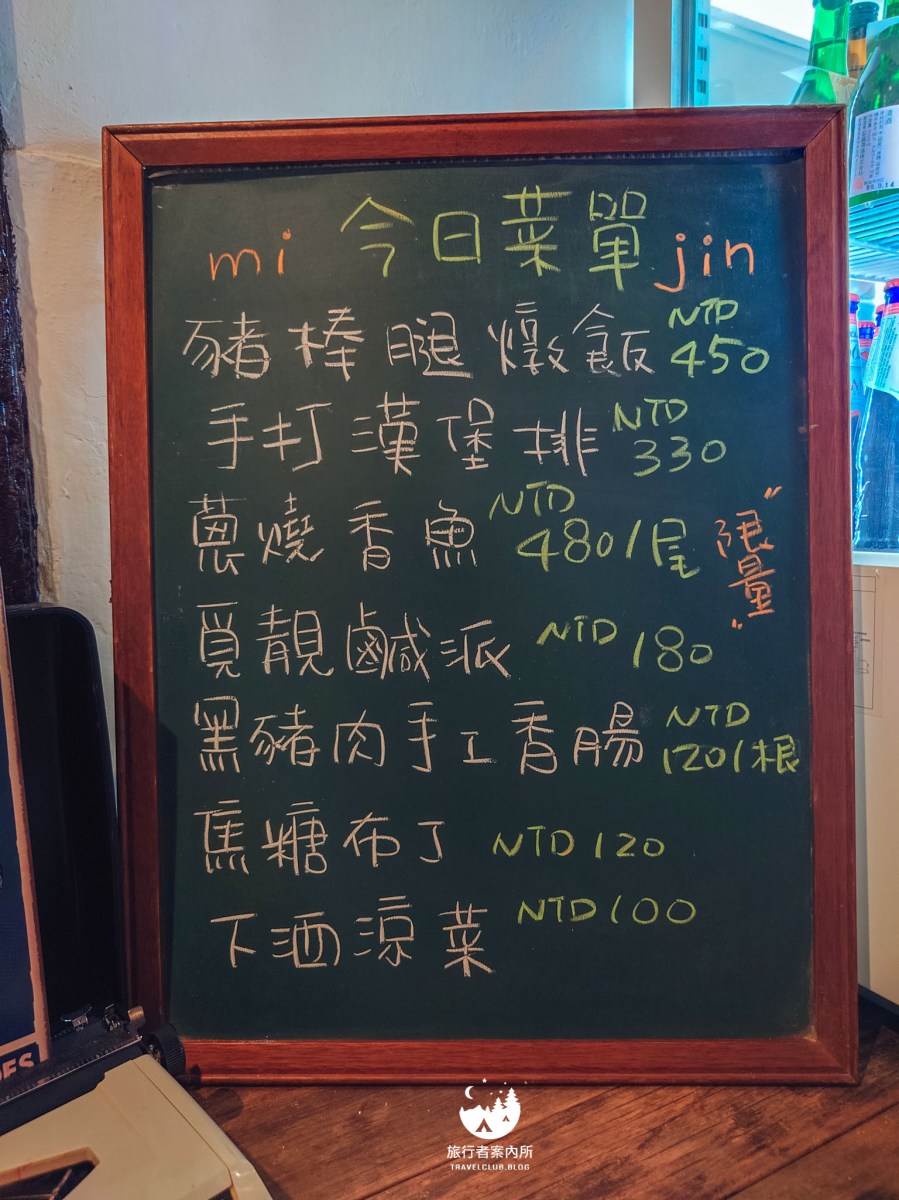 mi 今日菜單 jin
豬棒腿燉飯 NTD 450
手打漢堡排 NTD 330
蔥燒香魚 NTD 480/尾 "限量"
覓靚鹹派 NTD 180
黑豬肉手工香腸 NTD 120/根
焦糖布丁 NTD 120
下酒涼菜 NTD 100
旅行者案內所
TRAVELCLUB.BLOG